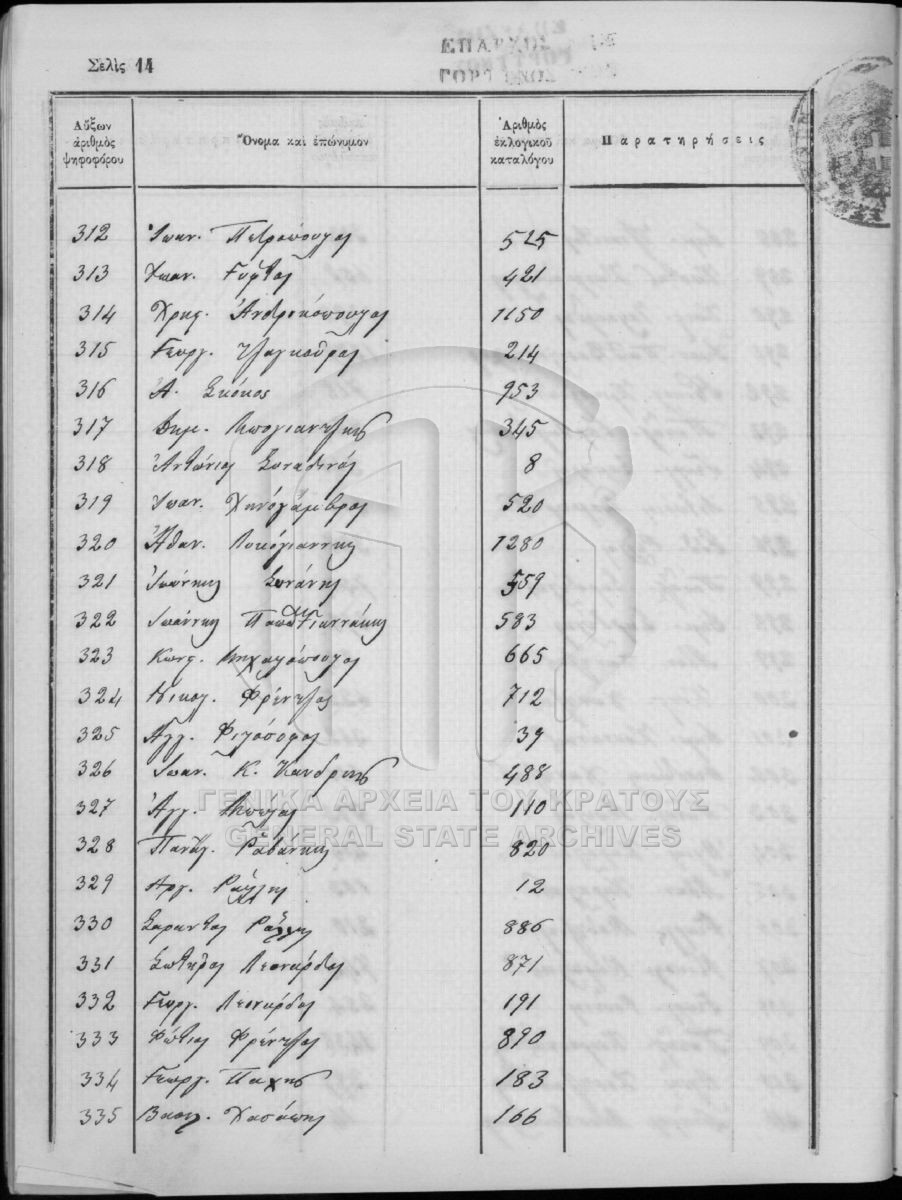 Σελὶς 14
ΕΠΑΡΧΟΣ
ΓΟΡΤΥΝΟΣ
Αὔξων ἀριθμὸς ψηφοφόρου Ὄνομα καὶ ἐπώνυμον Ἀριθμὸς ἐκλογικοῦ καταλόγου Παρατηρήσεις
312 Ἰωαν. Πετρόπουλος 525
313 Ἰωαν. Γυφτος 421
314 Χρησ. Ἀνδρικόπουλος 1150
315 Γεωργ. Τζαγκούρος 214
316 Α. Σκόκος 953
317 Δημ. 345
318 Ἀντώνιος Σοναδινός 8
319 Ἰωαν. Χηνόγαμβρος 520
320 Ἀθαν. Λυκόγιαννης 1280
321 Ἰωάννης 559
322 Ἰωάννης Παπαγιαννάκης 583
323 Κωνσ. Μιχαλόπουλος 665
324 Νικολ. Φρέντζος 712
325 Ἀγγ. Φιλόσοφος 39
326 Ἰωαν. Κ. Κανδρής 488
327 Ἀγγ. 110
328 Παναγ. Ραβάνης 820
329 Αργ. Ράλλης 12
330 Σαραντος Ράλλης 886
331 Σωτήριος Λεονάρδος 871
332 Γεωργ. Λεονάρδος 191
333 Φώτιος Φρέντζος 890
334 Γεωργ. Παχης 183
335 Βασιλ. Χασάπης 166
ΓΕΝΙΚΑ ΑΡΧΕΙΑ ΤΟΥ ΚΡΑΤΟΥΣ
GENERAL STATE ARCHIVES